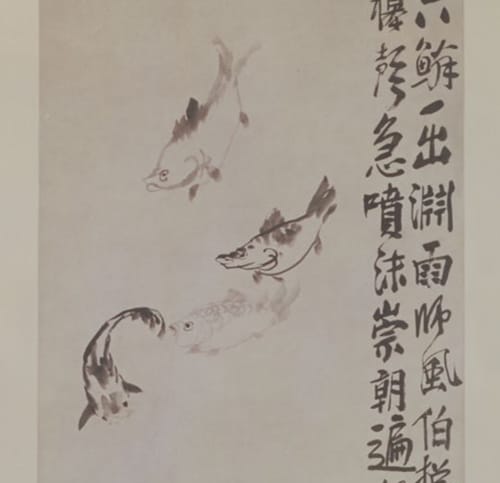 六鱗一出淵雨師風伯
聲急噴沫崇朝遍